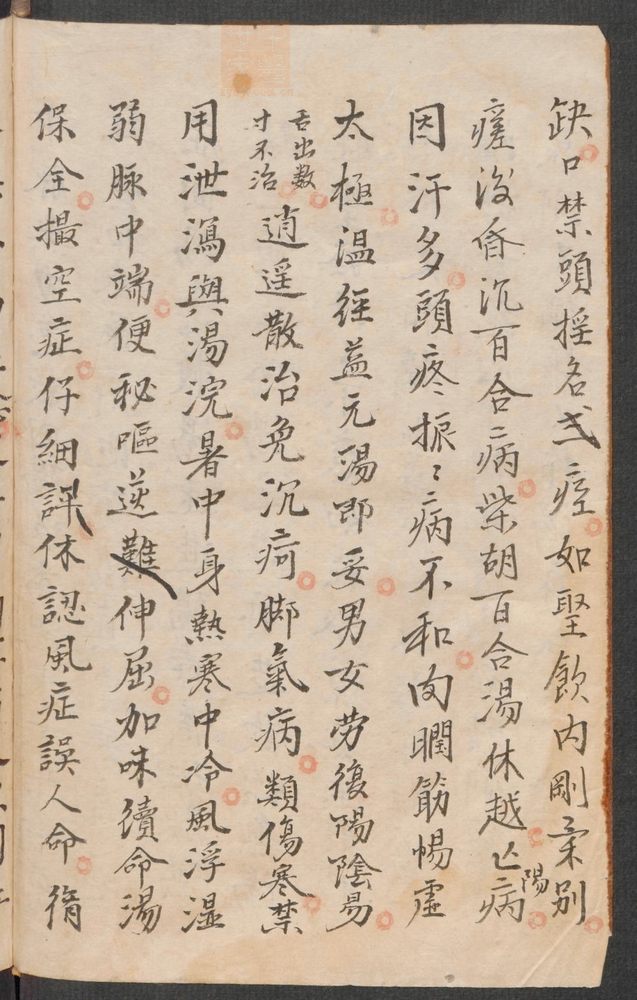 缺口禁頭摇名式痓如聖飲内剛柔别
瘥後昏沉百合病柴胡百合湯休越亡陽病
因汗多頭疼振〻病不和肉瞤筋惕虛
太極温経益元湯即妥男女劳復陽陰易
舌出数寸不治逍遥散治免沉疴脚氣病類傷寒禁
用泄瀉與湯浣暑中身熱寒中冷風浮湿
弱脉中端便秘嘔逆難伸屈加味續命湯
保全撮空症仔細詳休認風症誤人命循